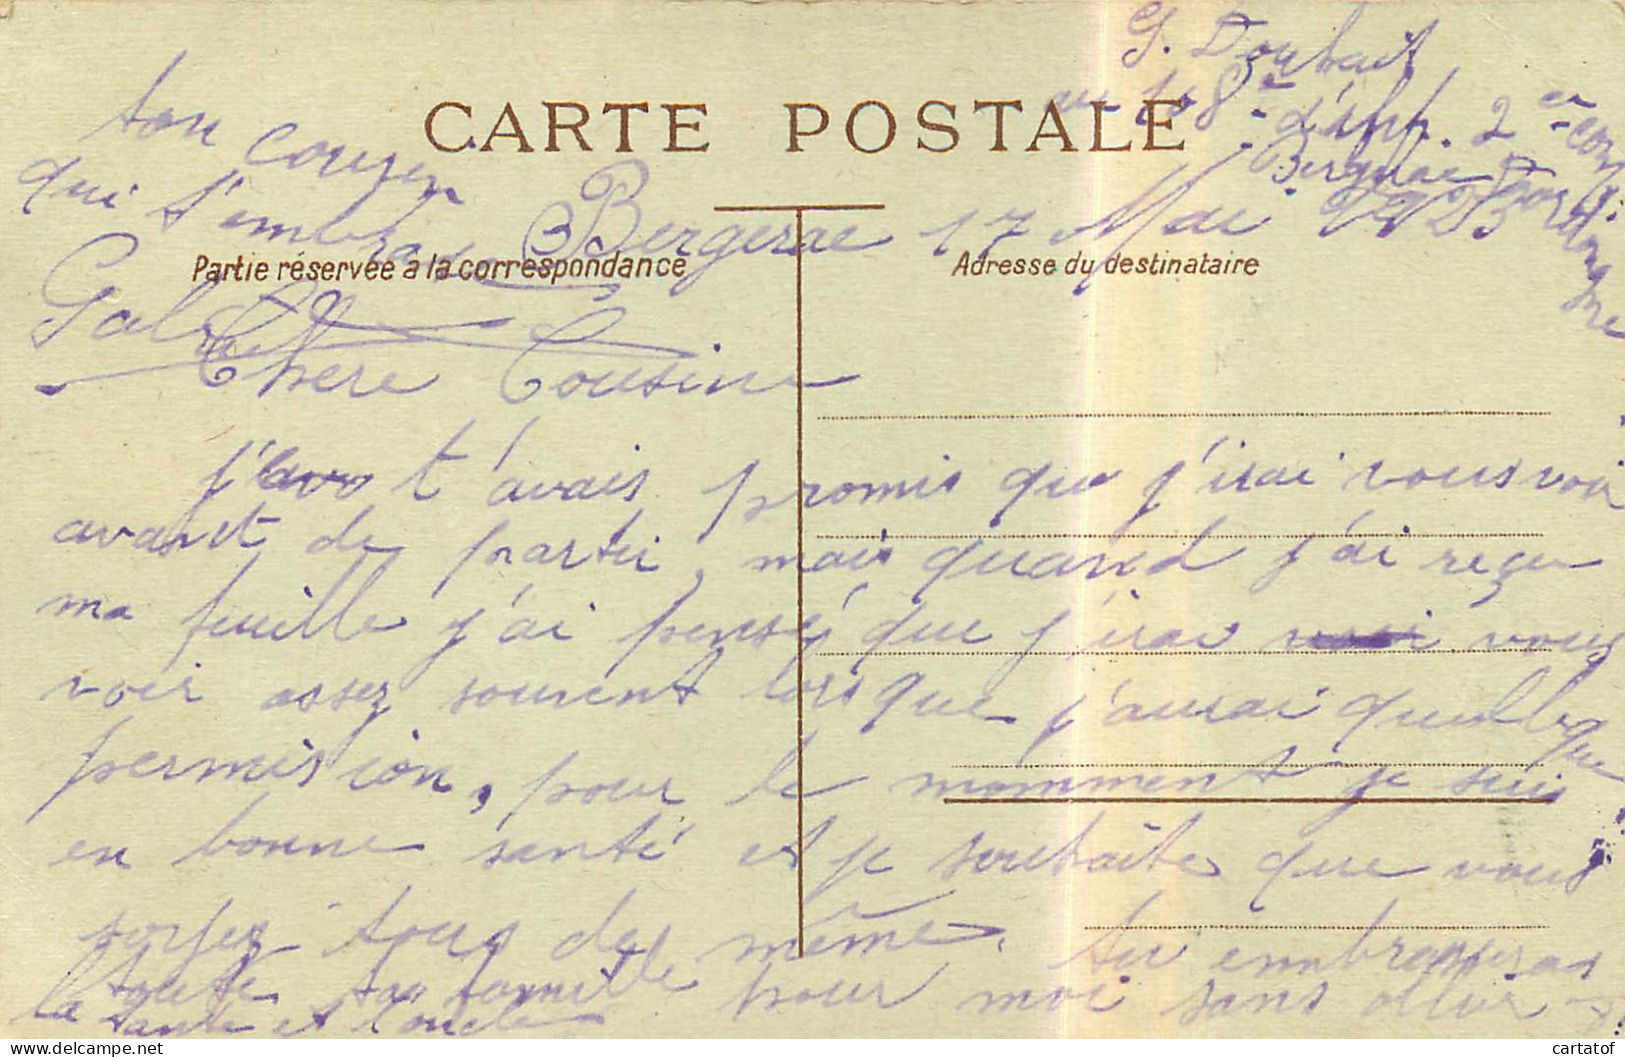 G. Doubait
au 108e d'Inf. 2em Comp.
Bergerac Dordogne
CARTE POSTALE
Bergerac 17 Mai 1923
Partie réservée à la correspondance
Adresse du destinataire
Chere Cousine
t'avais promis que j'irai vous voir
avant de partir, mais quand j'ai reçu
ma feuille j'ai pensé que j'irai vous
voir assez souvent lorsque j'aurai quelque
permission, pour le momment je suis
en bonne santé et je souhaite que vous
soyez tous de même. tu embrasseras
toute ta famille pour moi sans oublier
la tante et l'oncle
ton cousin
qui t'embrasse
cartatof